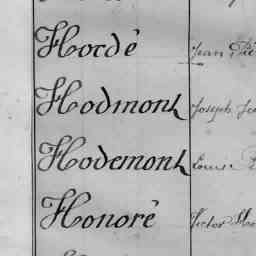 Hordé Jean
Hodmont Joseph
Hodemont Louise
Honoré Victor